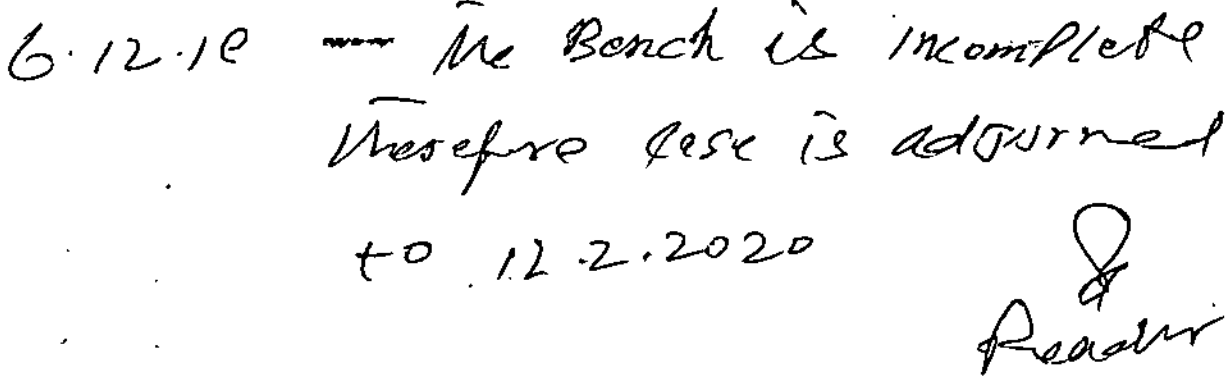 6.12.19 — The Bench is incomplete
Therefore case is adjourned
to 12.2.2020
Reader